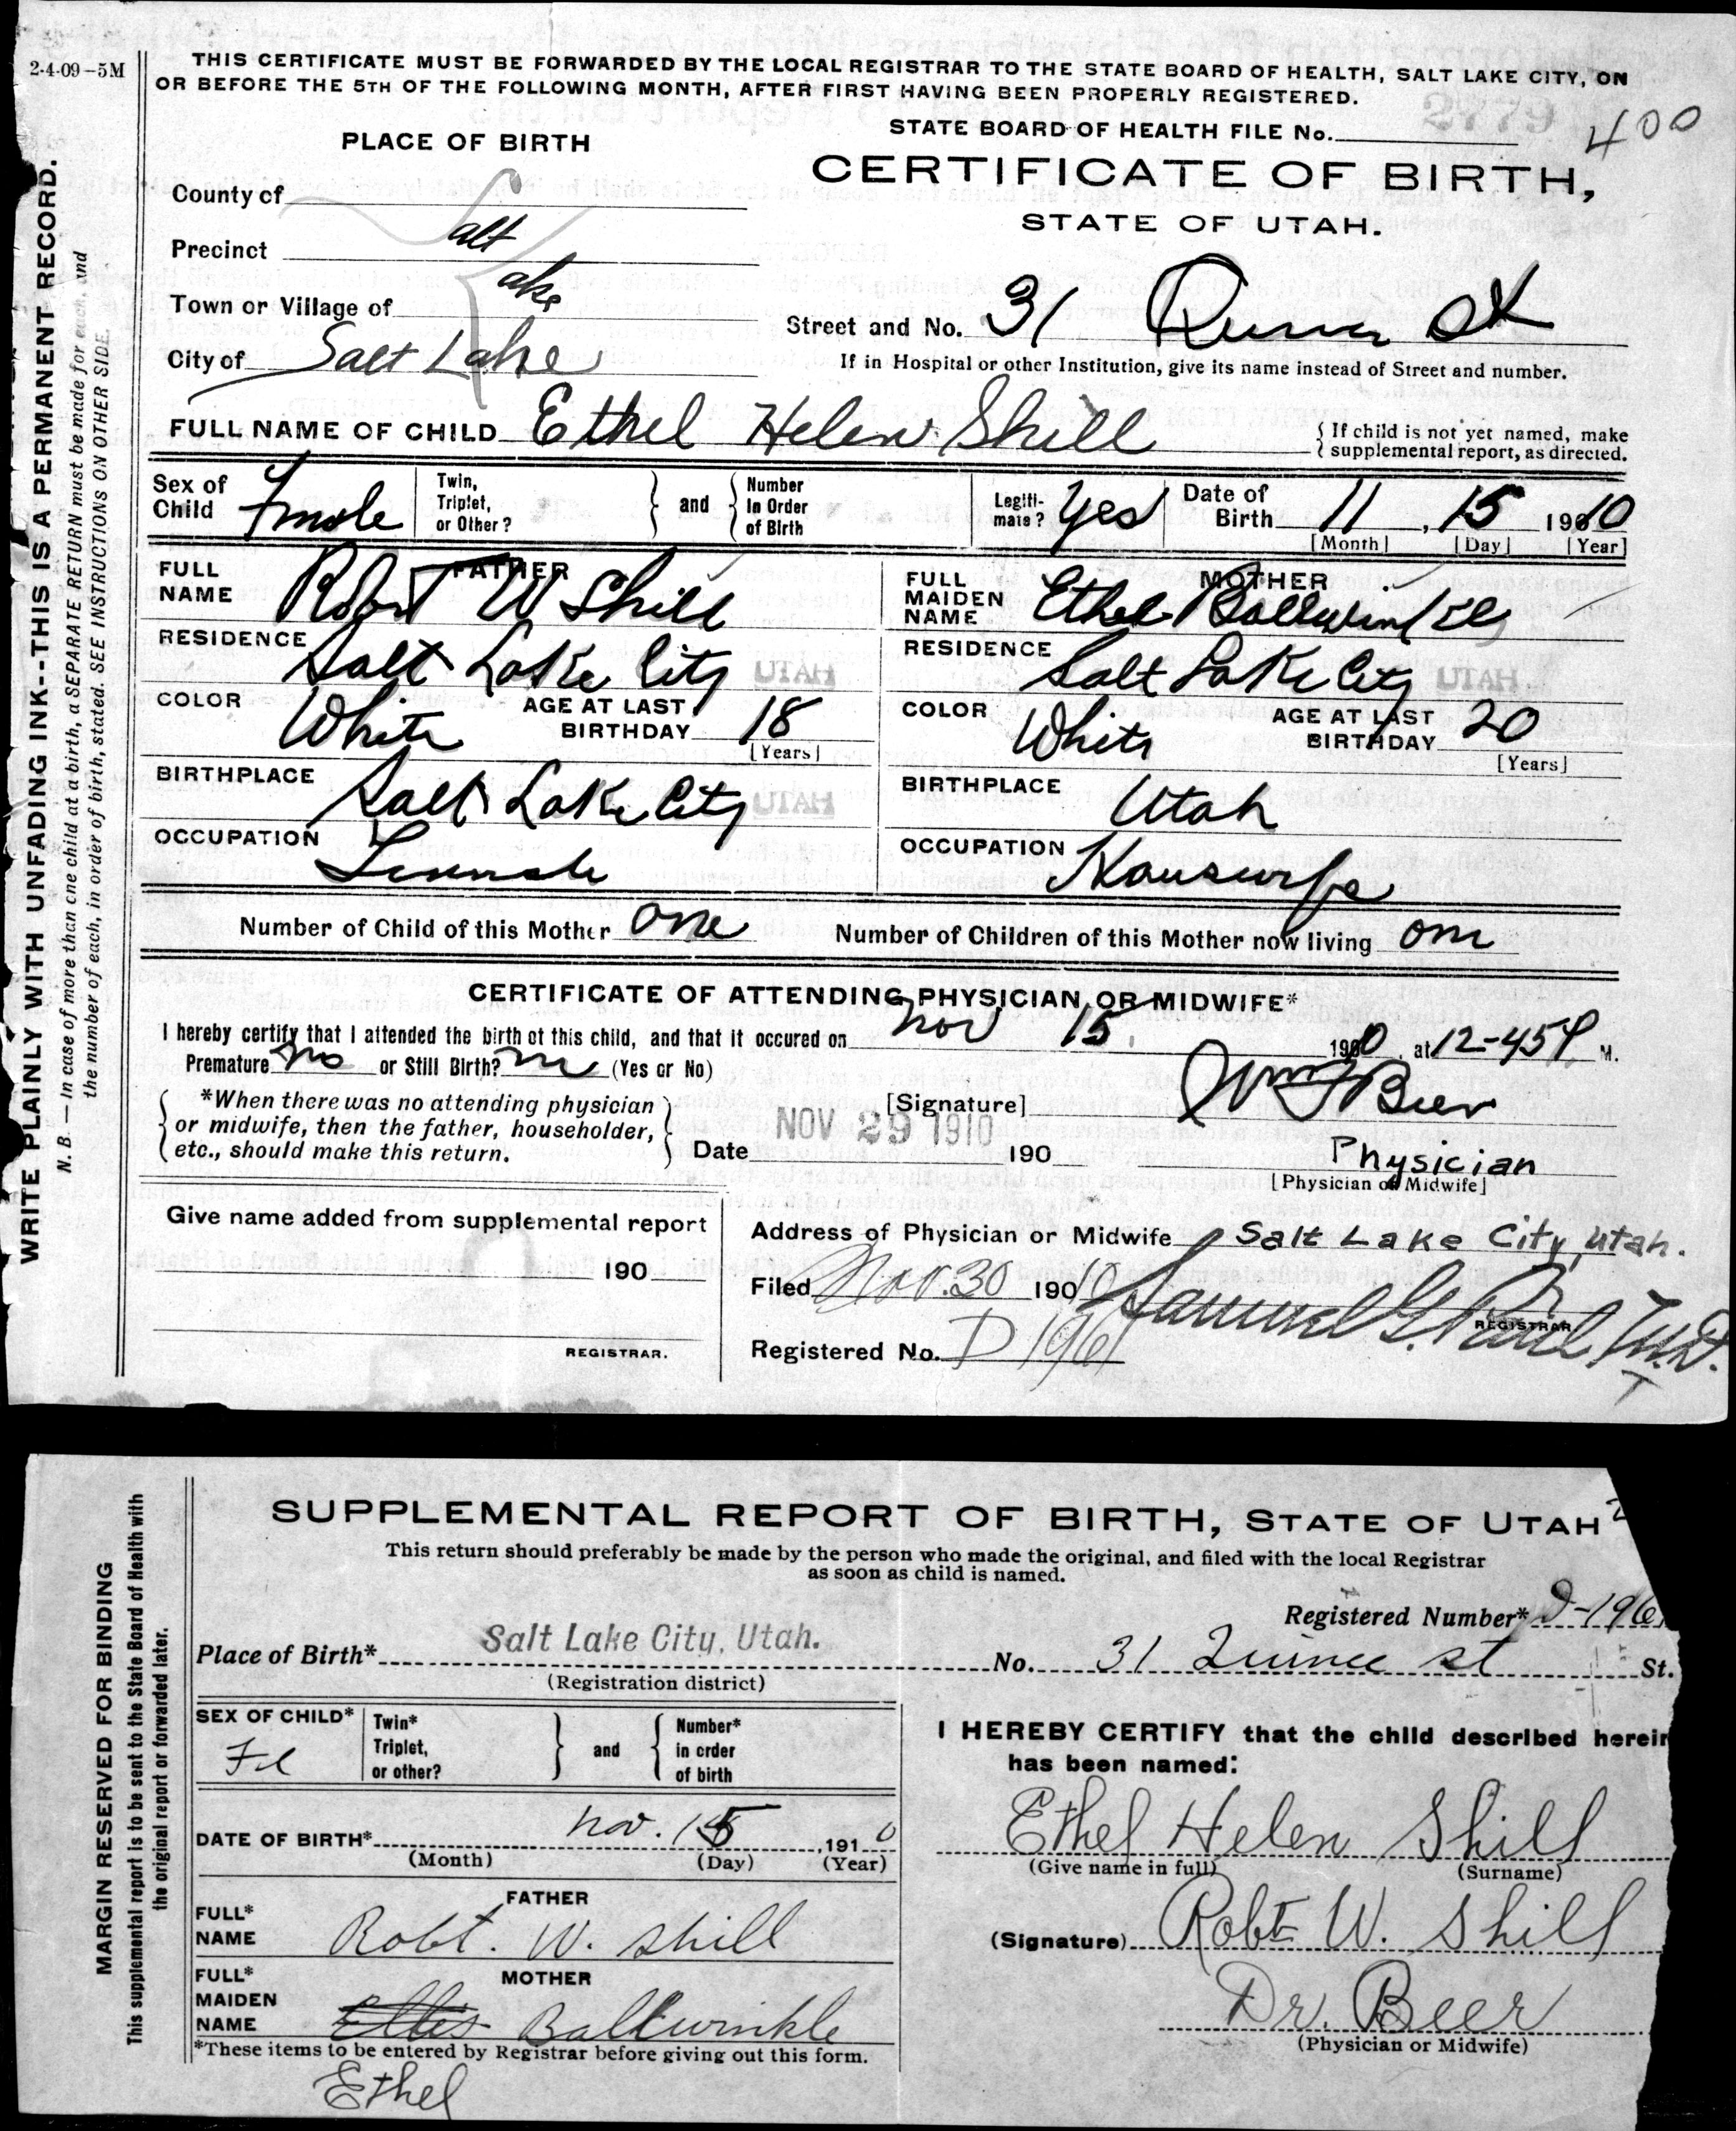 2-4-09-5M
THIS CERTIFICATE MUST BE FORWARDED BY THE LOCAL REGISTRAR TO THE STATE BOARD OF HEALTH, SALT LAKE CITY, ON
OR BEFORE THE 5TH OF THE FOLLOWING MONTH, AFTER FIRST HAVING BEEN PROPERLY REGISTERED.
WRITE PLAINLY WITH UNFADING INK--THIS IS A PERMANENT RECORD.
N. B. — In case of more than one child at a birth, a SEPARATE RETURN must be made for each, and
the number of each, in order of birth, stated. SEE INSTRUCTIONS ON OTHER SIDE.
2779
STATE BOARD OF HEALTH FILE No. 400
PLACE OF BIRTH
CERTIFICATE OF BIRTH,
STATE OF UTAH.
County of
Precinct Salt
Town or Village of Lake
City of Salt Lake
Street and No. 31 St
If in Hospital or other Institution, give its name instead of Street and number.
FULL NAME OF CHILD Ethel Helen Shill
{ If child is not yet named, make
supplemental report, as directed.
Sex of Child Female
Twin, Triplet, or Other? } and { Number In Order of Birth
Legitimate? Yes
Date of Birth 11, 15 1910
[Month] [Day] [Year]
FATHER
FULL NAME Robert W Shill
RESIDENCE Salt Lake City UTAH
COLOR White AGE AT LAST BIRTHDAY 18
[Years]
BIRTHPLACE Salt Lake City UTAH
OCCUPATION
MOTHER
FULL MAIDEN NAME Ethel Ballwinkle
RESIDENCE Salt Lake City UTAH
COLOR White AGE AT LAST BIRTHDAY 20
[Years]
BIRTHPLACE Utah
OCCUPATION Housewife
Number of Child of this Mother one Number of Children of this Mother now living one
CERTIFICATE OF ATTENDING PHYSICIAN OR MIDWIFE*
I hereby certify that I attended the birth of this child, and that it occured on Nov 15, 1910, at 12-45 P. M.
Premature No or Still Birth? no (Yes or No)
{ *When there was no attending physician
or midwife, then the father, householder,
etc., should make this return. }
[Signature] Wm F Beer
Date NOV 29 1910 190
Physician
[Physician or Midwife]
Give name added from supplemental report
190
REGISTRAR.
Address of Physician or Midwife Salt Lake City, Utah.
Filed Nov. 30 1910 Samuel G. Paul M.D.
REGISTRAR
Registered No. D 1961
SUPPLEMENTAL REPORT OF BIRTH, STATE OF UTAH
This return should preferably be made by the person who made the original, and filed with the local Registrar
as soon as child is named.
MARGIN RESERVED FOR BINDING
This supplemental report is to be sent to the State Board of Health with
the original report or forwarded later.
Registered Number* D-1961
Place of Birth* Salt Lake City, Utah. No. 31 Quince st St.
(Registration district)
SEX OF CHILD* Fe
Twin* Triplet, or other? } and { Number* in order of birth
DATE OF BIRTH* Nov. 15, 1910
(Month) (Day) (Year)
FATHER
FULL* NAME Robt. W. Shill
MOTHER
FULL* MAIDEN NAME Ballwinkle
*These items to be entered by Registrar before giving out this form.
Ethel
I HEREBY CERTIFY that the child described herein
has been named:
Ethel Helen Shill
(Give name in full) (Surname)
(Signature) Robt W. Shill
Dr. Beer
(Physician or Midwife)